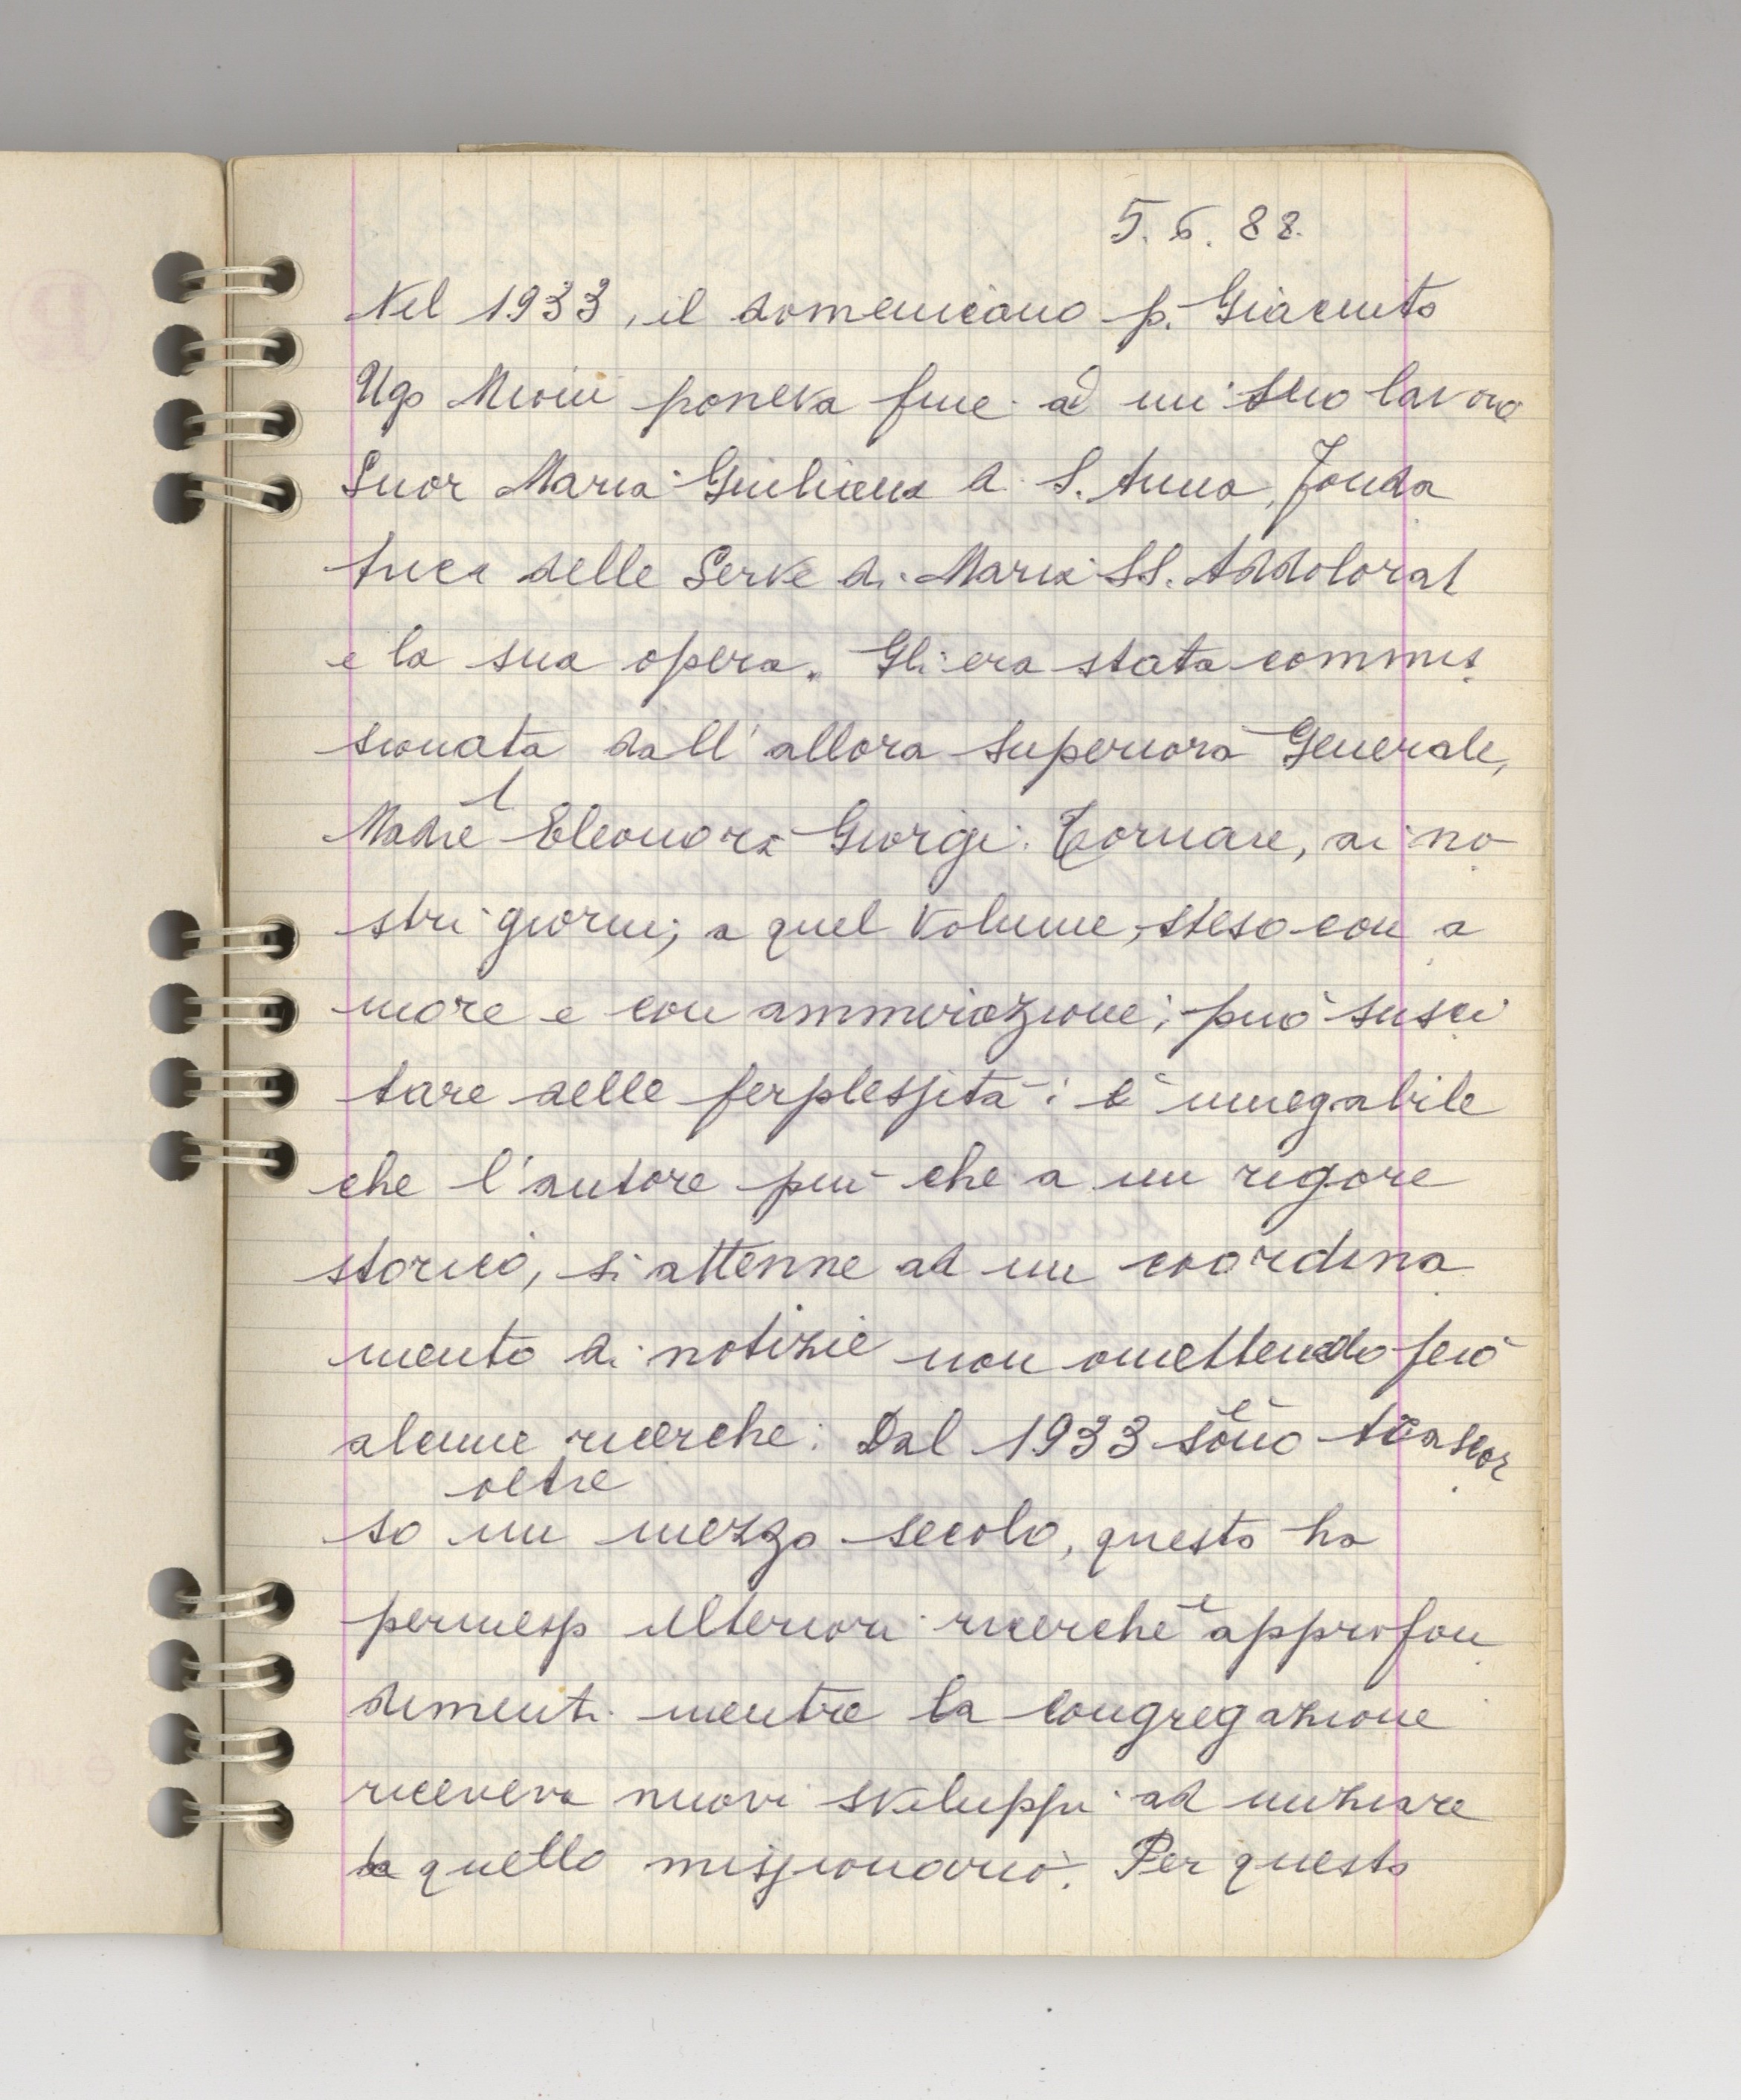 5. 6. 88.
Nel 1933, il domenicano p. Giacinto
Ugo poneva fine ad un suo lavoro
Suor Maria Giuliana d. S. Anna, fonda
trice delle Serve di Maria SS. Addolorat
e la sua opera. Gli era stata commis
sionata dall'allora Superiora Generale,
Madre Eleonora Giorgi. Tornare, ai no
stri giorni, a quel volume, steso con a
more e con ammirazione, può susci
tare delle perplessità: è innegabile
che l'autore più che a un rigore
storico, si attenne ad un coordina
mento di notizie non omettendo però
alcune ricerche. Dal 1933 è trascor
oltre
so un mezzo secolo, questo ha
permesso ulteriori ricerche e approfon
dimenti mentre la Congregazione
riceveva nuovi sviluppi ad iniziare
da quello missionario. Per questo